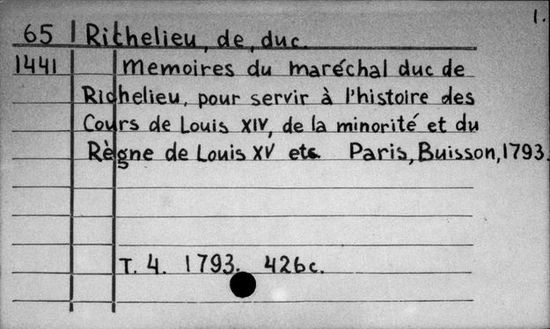 1.
65 Richelieu, de, duc.
1441 Memoires du maréchal duc de
Richelieu, pour servir à l'histoire des
Cours de Louis XIV, de la minorité et du
Règne de Louis XV etc. Paris, Buisson, 1793.
T. 4. 1793. 426c.